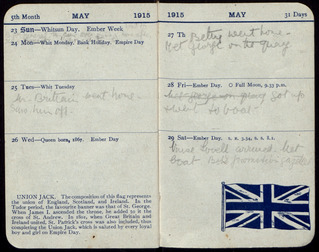 5th Month MAY 1915
23 Sun—Whitsun Day. Ember Week
24 Mon—Whit Monday. Bank Holiday. Empire Day
25 Tues—Whit Tuesday
went home.
26 Wed—Queen born, 1867. Ember Day
UNION JACK. The composition of this flag represents
the union of England, Scotland, and Ireland. In the
Tudor period, the favourite banner was that of St. George.
When James I. ascended the throne, he added to it the
cross of St. Andrew. In 1801, when Great Britain and
Ireland united, St. Patrick's cross was also included, thus
completing the Union Jack, which is saluted by every loyal
boy and girl on Empire Day.
1915 MAY 31 Days
27 Th Betty went home.
Met George on the quay
28 Fri—Ember Day. O Full Moon, 9.33 p.m.
went to boat
29 Sat—Ember Day. s. r. 3.54, s. s. 8.1.
arrived. Met
boat